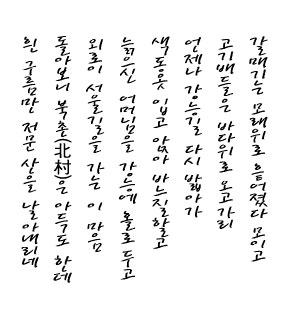 갈매기는 모래위로 흩어졌다 모이고
고기배들은 바다위로 오고가리
언제나 강능길 다시 밟아가
색동옷 입고 앉아 바느질할고
늙으신 어머님을 강능에 홀로 두고
외로이 서울길을 가는 이 마음
돌아보니 북촌(北村)은 아득도 한데
흰 구름만 저문 산을 날아내리네